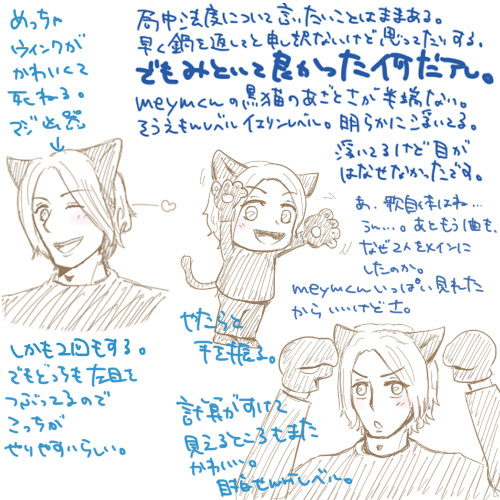 めっちゃ
ウインクが
かわいくて
死ねる。
マジ凶器
局中法度について言いたいことはままある。
早く鍋を返してと申し訳ないけど思ってたりする。
でもみといて良かった何だアレ。
meymcnの黒猫のあざとさが半端ない。
そうえもんレベル イエリンレベル。明らかに浮いてる。
浮いてるけど目が
はなせなかったです。
あ、歌自体はね…
うん…。あともう1曲も、
なぜ2人をメインに
したのか。
meymcnいっぱい見れた
からいいけどさ。
やたらと
手を振る。
しかも2回もする。
でもどっちも左目を
つぶってるので
こっちが
やりやすいらしい。
計算がすけて
見えるところもまた
かわいい。
目指せんけレベル。